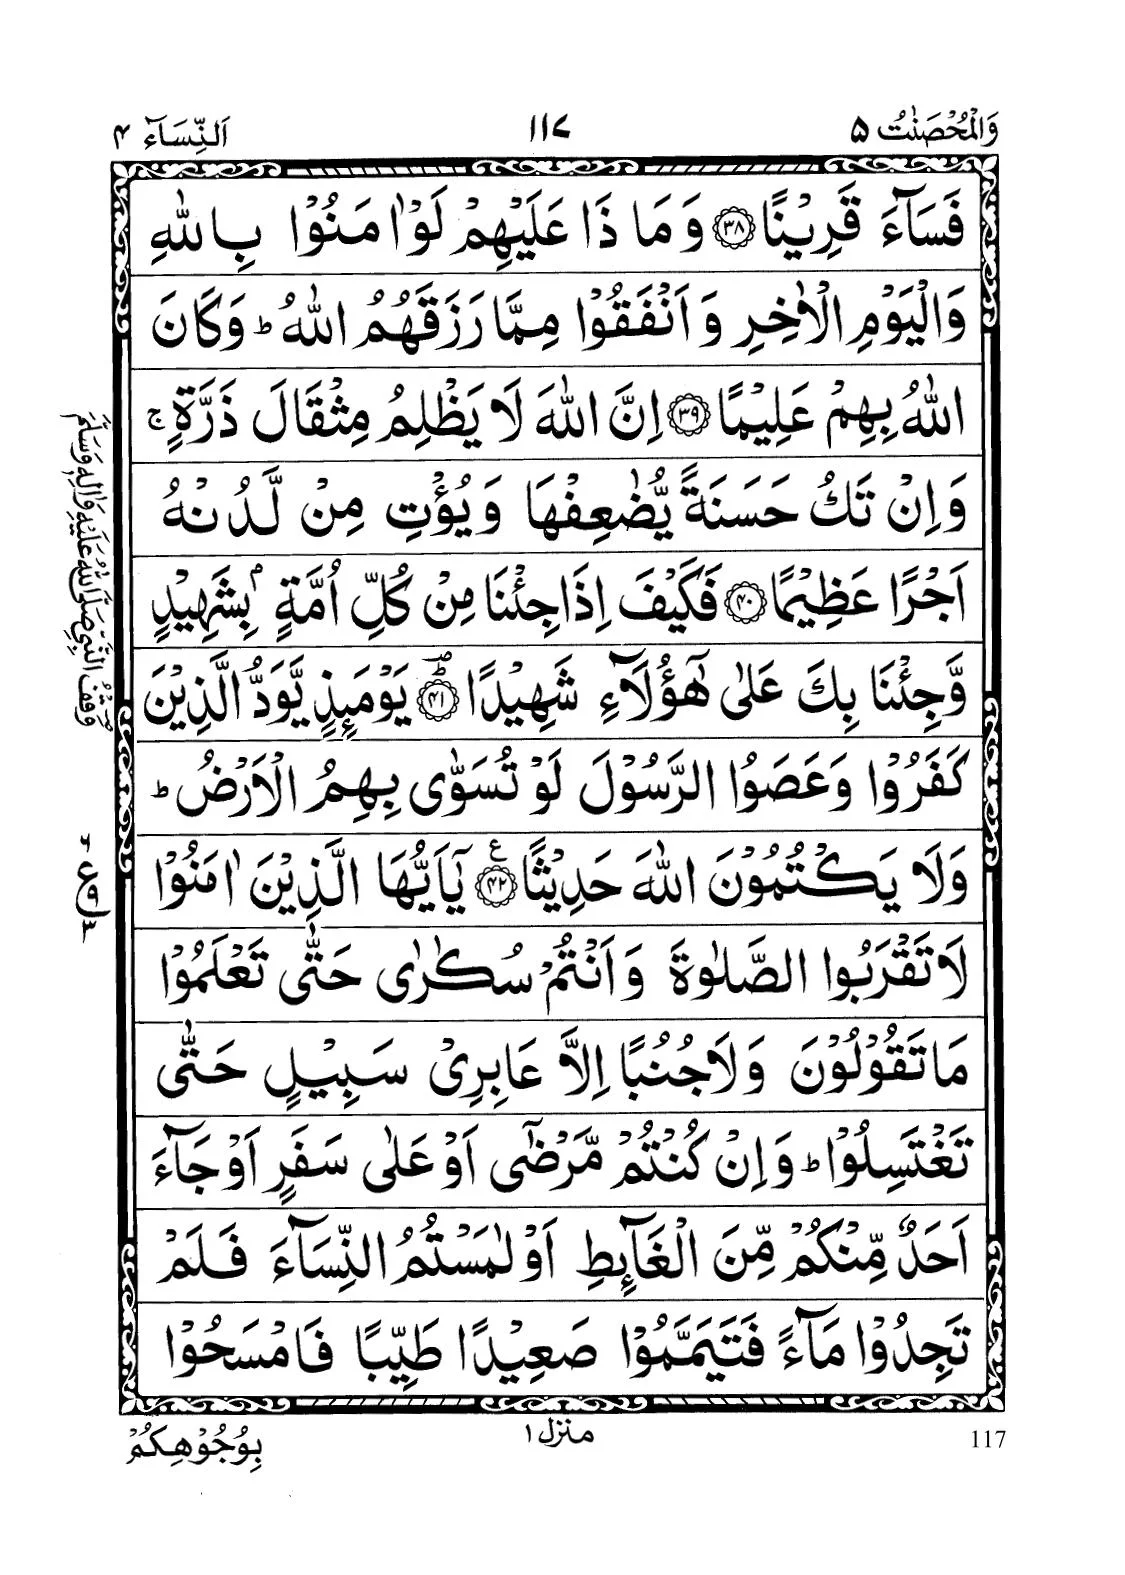 وَالْمُحْصَنٰتُ ۵
۱۱۷
اَلنِّسَآءَ ۴
فَسَآءَ قَرِيْنًا ﴿۳۸﴾ وَ مَا ذَا عَلَيْهِمْ لَوْ اٰمَنُوْا بِاللّٰهِ
وَالْيَوْمِ الْاٰخِرِ وَ اَنْفَقُوْا مِمَّا رَزَقَهُمُ اللّٰهُ ؕ وَكَانَ
اللّٰهُ بِهِمْ عَلِيْمًا ﴿۳۹﴾ اِنَّ اللّٰهَ لَا يَظْلِمُ مِثْقَالَ ذَرَّةٍ ۚ
وَاِنْ تَكُ حَسَنَةً يُّضٰعِفْهَا وَ يُؤْتِ مِنْ لَّدُنْهُ
اَجْرًا عَظِيْمًا ﴿۴۰﴾ فَكَيْفَ اِذَا جِئْنَا مِنْ كُلِّ اُمَّةٍۭ بِشَهِيْدٍ
وَّجِئْنَا بِكَ عَلٰى هٰٓؤُلَآءِ شَهِيْدًا ﴿۴۱﴾ؕؔ يَوْمَئِذٍ يَّوَدُّ الَّذِيْنَ
كَفَرُوْا وَعَصَوُا الرَّسُوْلَ لَوْ تُسَوّٰى بِهِمُ الْاَرْضُ ؕ
وَلَا يَكْتُمُوْنَ اللّٰهَ حَدِيْثًا ﴿۴۲﴾ ع يٰٓاَيُّهَا الَّذِيْنَ اٰمَنُوْا
لَا تَقْرَبُوا الصَّلٰوةَ وَ اَنْتُمْ سُكٰرٰى حَتّٰى تَعْلَمُوْا
مَا تَقُوْلُوْنَ وَلَا جُنُبًا اِلَّا عَابِرِيْ سَبِيْلٍ حَتّٰى
تَغْتَسِلُوْا ؕ وَاِنْ كُنْتُمْ مَّرْضٰٓى اَوْ عَلٰى سَفَرٍ اَوْ جَآءَ
اَحَدٌ مِّنْكُمْ مِّنَ الْغَآئِطِ اَوْ لٰمَسْتُمُ النِّسَآءَ فَلَمْ
تَجِدُوْا مَآءً فَتَيَمَّمُوْا صَعِيْدًا طَيِّبًا فَامْسَحُوْا
وقف النبي صَلَّى اللّٰهُ عَلَيْهِ وَاٰلِهٖ وَسَلَّمَ
۶
ع ۹
۳
117
منزل ۱
بِوُجُوْهِكُمْ